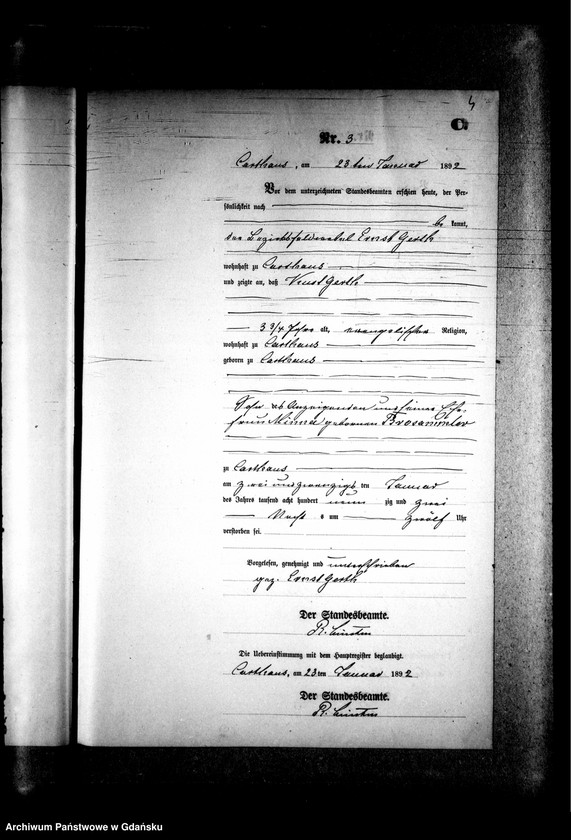 4
C.
Nr. 3
Carthaus, am 23ten Januar 1892
Vor dem unterzeichneten Standesbeamten erschien heute, der Per-
sönlichkeit nach
be kannt,
der Bezirksfeldwebel Ernst Gerth
wohnhaft zu Carthaus
und zeigte an, daß Gerth
3 3/4 Jahre alt, evangelischer Religion,
wohnhaft zu Carthaus
geboren zu Carthaus
Sohn des Anzeigenden und seiner Ehe-
frau Minna geborenen Brosammler
zu Carthaus
am zwei und zwanzigs ten Januar
des Jahres tausend acht hundert neun zig und zwei
Nachts um zwölf Uhr
verstorben sei.
Vorgelesen, genehmigt und unterschrieben
gez. Ernst Gerth
Der Standesbeamte.
Die Uebereinstimmung mit dem Hauptregister beglaubigt.
Carthaus, am 23 ten Januar 1892
Der Standesbeamte.
Archiwum Państwowe w Gdańsku